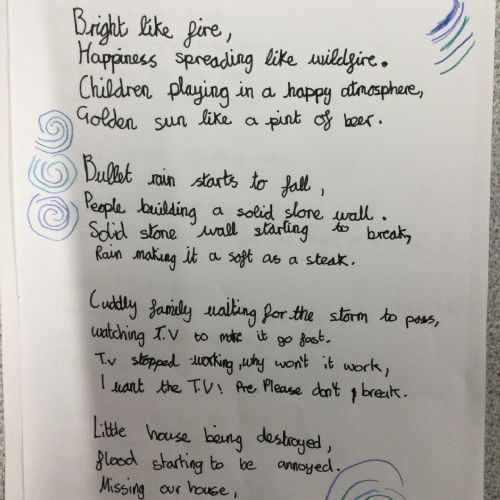 Bright like fire,
Happiness spreading like wildfire.
Children playing in a happy atmosphere,
Golden sun like a pint of beer.
Bullet rain starts to fall,
People building a solid stone wall.
Solid stone wall starting to break,
Rain making it a soft as a steak.
Cuddly family waiting for the storm to pass,
watching T.V to make it go fast.
T.v stopped working, why won't it work,
I want the T.V! Please don't break.
Little house being destroyed,
flood starting to be annoyed.
Missing our house,